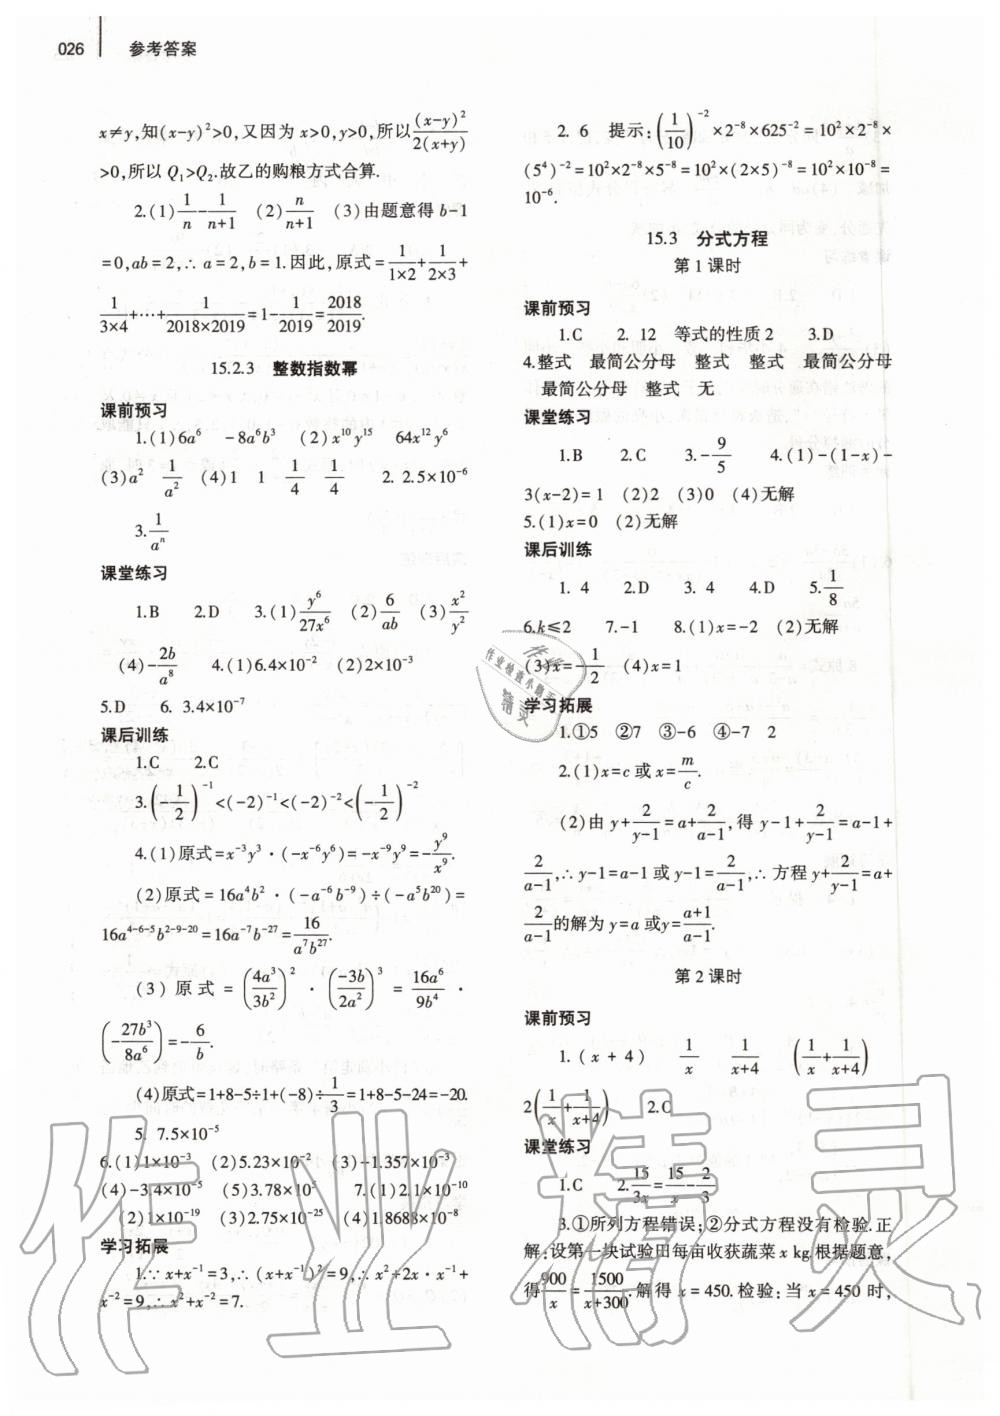 026 参考答案
x≠y,知(x-y)²>0,又因为 x>0,y>0,所以(x-y)²/2(x+y)
>0,所以 Q₁>Q₂.故乙的购粮方式合算.
2.(1)1/n-1/(n+1) (2)n/(n+1) (3)由题意得 b-1
=0,ab=2,∴a=2,b=1.因此,原式=1/(1×2)+1/(2×3)+
1/(3×4)+…+1/(2018×2019)=1-1/2019=2018/2019.
15.2.3 整数指数幂
课前预习
1.(1)6a⁶ -8a⁶b³ (2)x¹⁰y¹⁵ 64x¹²y⁶
(3)a² 1/a² (4)1 1 1/4 1/4 2. 2.5×10⁻⁶
3.1/aⁿ
课堂练习
1.B 2.D 3.(1)y⁶/27x⁶ (2)6/ab (3)x²/y²
(4)-2b/a⁸ 4.(1)6.4×10⁻² (2)2×10⁻³
5.D 6. 3.4×10⁻⁷
课后训练
1.C 2.C
3.(-1/2)⁻¹<(-2)⁻¹<(-2)⁻²<(-1/2)⁻²
4.(1)原式=x⁻³y³·(-x⁻⁶y⁶)=-x⁻⁹y⁹=-y⁹/x⁹.
(2)原式=16a⁴b²·(-a⁻⁶b⁻⁹)÷(-a⁵b²⁰)=
16a⁴⁻⁶⁻⁵b²⁻⁹⁻²⁰=16a⁻⁷b⁻²⁷=16/a⁷b²⁷.
(3)原式=(4a³/3b²)²·(-3b/2a²)³=16a⁶/9b⁴·
(-27b³/8a⁶)=-6/b.
(4)原式=1+8-5÷1+(-8)÷1/3=1+8-5-24=-20.
5. 7.5×10⁻⁵
6.(1)1×10⁻³ (2)5.23×10⁻² (3)-1.357×10⁻³
(4)-3.4×10⁻⁵ (5)3.78×10⁵ 7.(1)2.1×10⁻¹⁰
(2)1×10⁻¹⁹ (3)2.75×10⁻²⁵ (4)1.8688×10⁻⁸
学习拓展
1.∵x+x⁻¹=3,∴(x+x⁻¹)²=9,∴x²+2x·x⁻¹+
x⁻²=9,∴x²+x⁻²=7.
2. 6 提示:(1/10)⁻²×2⁻⁸×625⁻²=10²×2⁻⁸×
(5⁴)⁻²=10²×2⁻⁸×5⁻⁸=10²×(2×5)⁻⁸=10²×10⁻⁸=
10⁻⁶.
15.3 分式方程
第 1 课时
课前预习
1.C 2. 12 等式的性质 2 3.D
4.整式 最简公分母 整式 整式 最简公分母
最简公分母 整式 无
课堂练习
1.B 2.C 3.-9/5 4.(1)-(1-x)-
3(x-2)=1 (2)2 (3)0 (4)无解
5.(1)x=0 (2)无解
课后训练
1. 4 2.D 3. 4 4.D 5.1/8
6.k≤2 7.-1 8.(1)x=-2 (2)无解
(3)x=-1/2 (4)x=1
学习拓展
1.①5 ②7 ③-6 ④-7 2
2.(1)x=c 或 x=m/c.
(2)由 y+2/(y-1)=a+2/(a-1),得 y-1+2/(y-1)=a-1+
2/(a-1),∴y-1=a-1 或 y-1=2/(a-1),∴方程 y+2/(y-1)=a+
2/(a-1)的解为 y=a 或y=(a+1)/(a-1).
第 2 课时
课前预习
1.(x+4) 1/x 1/(x+4) (1/x+1/(x+4))
2(1/x+1/(x+4)) 2.C
课堂练习
1.C 2.15/3x=15/x-2/3
3.①所列方程错误;②分式方程没有检验.正
解:设第一块试验田每亩收获蔬菜 x kg.根据题意,
得900/x=1500/(x+300).解得 x=450.检验:当 x=450 时,
作业检查小助手
作业精灵